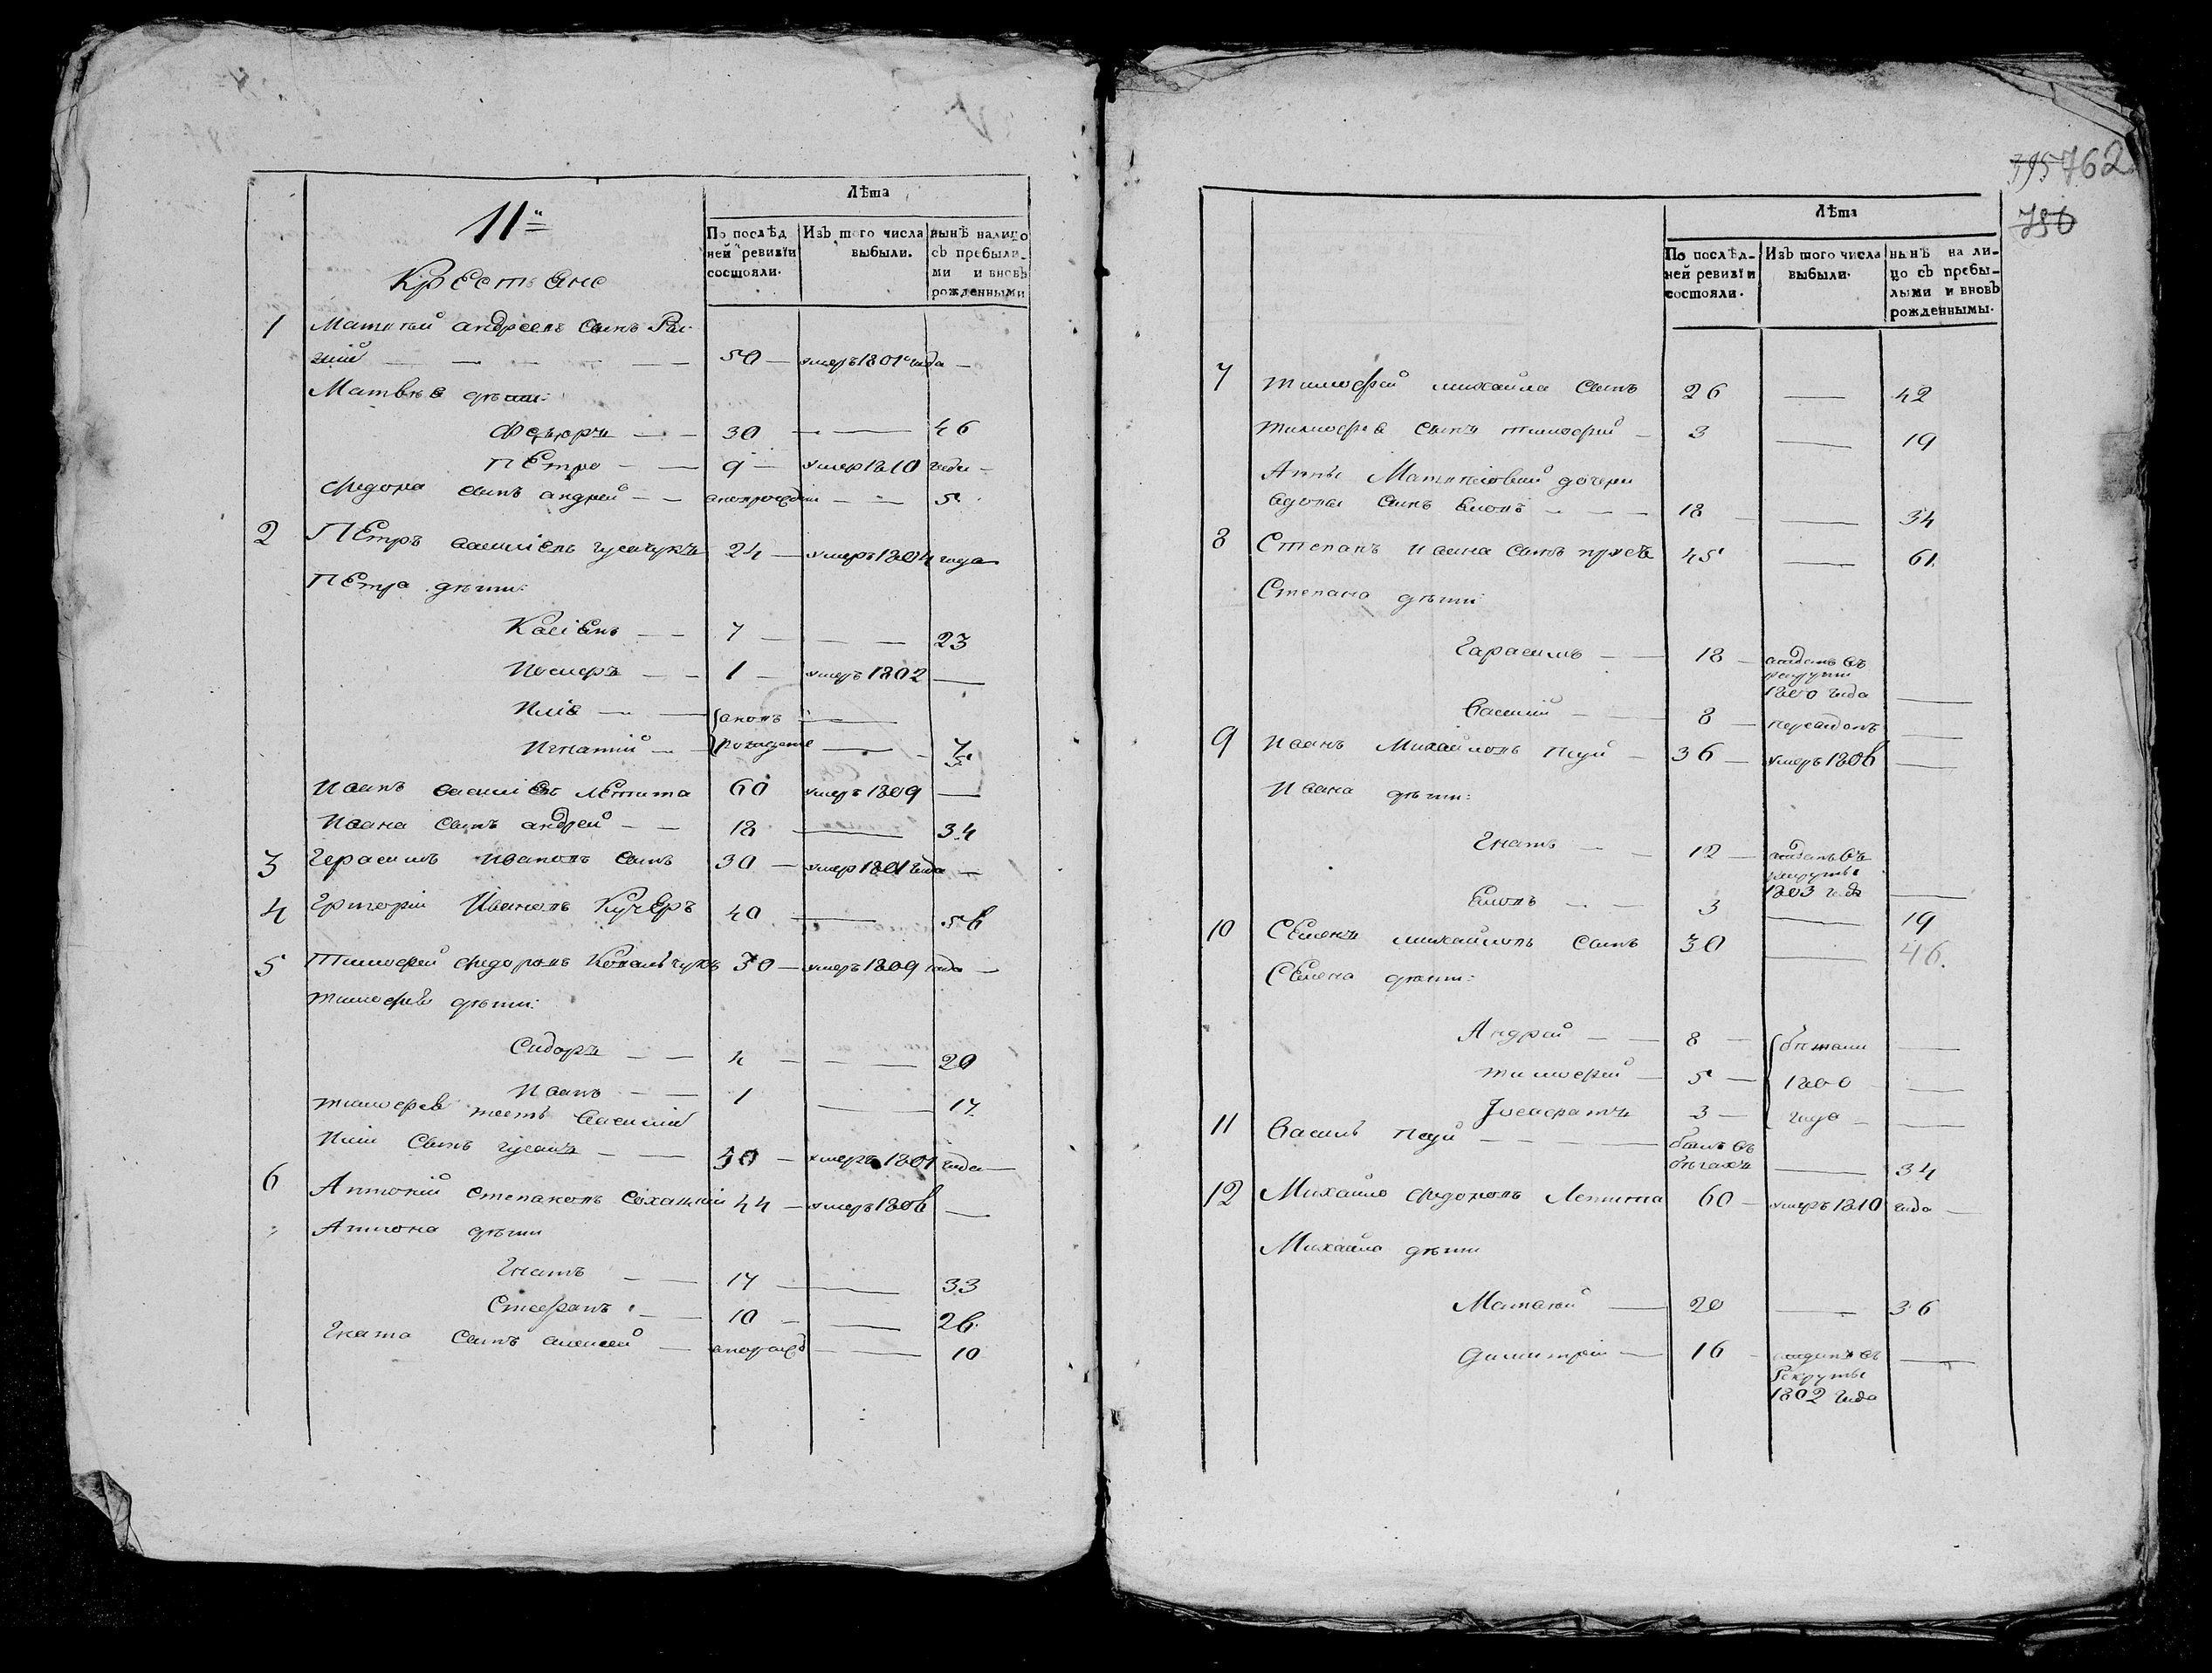 11.
Крестьяне
Лѣта
По послѣдней ревизіи состояли.
Изъ того числа выбыли.
нынѣ налицо съ прибылыми и вновь рожденными
1 Матвѣй андреевъ сынъ
50 — умеръ 1801 года —
Матвѣя дѣти:
Федоръ — — 30 — — 46
Петро — — 9 — умер 1810 года —
Федора сынъ андрей — — — — 5
2 Петръ василіевъ гусачукъ 24 — умеръ 1804 года
Петра дѣти:
Касіянъ — — 7 — — — 23
— — 1 — умеръ 1802 —
Илія — —
Игнатий — — рожденые — — 5
Иванъ василіевъ Лепита 60 умеръ 1809 —
Ивана сынъ андрей — — 18 — 34
3 Герасимъ Ивановъ сынъ 30 — умер 1801 года —
4 Григорій Ивановъ Кучеръ 40 — 56
5 Тимофей Федоровъ Ковальчукъ 30 — умеръ 1809 года —
Тимофея дѣти:
Сидоръ — — 4 — — — 20
Иванъ — — 1 — 17
Тимофея тесть Василий
сынъ — — 50 — умеръ 1801 года —
6 Антоній Степановъ Сохацкій 44 — умеръ 1806 —
Антона дѣти
Гнатъ — — 17 — — 33
Стефанъ — 10 — — 26
Гната сынъ алексей — — — 10
395 762
756
Лѣта
По послѣдней ревизіи состояли.
Изъ того числа выбыли.
нынѣ на лицо съ прибылыми и вновь рожденнымы.
7 Тимофей михайла сынъ 26 — 42
Тимофея сынъ тимофей — 3 — 19
Анны дочери
вдовы сынъ — — — 18 — 34
8 Степанъ ивана сынъ 45 — 61.
Степана дѣти:
Гарасимъ — — 18 — отданъ въ
рекруты
1800 года —
Василий — — 8 — —
9 Иванъ Михайловъ — 36 — умеръ 1806 —
Ивана дѣти:
Гнатъ — — 12 — отданъ въ
рекруты
1803 года —
— — 3 — 19
10 Семенъ михайловъ сынъ 30 — 46.
Семена дѣти:
Андрей — — 8 — бѣжали —
Тимофей — 5 — 1800 —
3 — года — —
11 Василь — — — — былъ въ
бѣгахъ — 34
12 Михайло Федоровъ Лепита 60 — умеръ 1810 года —
Михайла дѣти
Матвѣй — 20 — 36
Димитрій — 16 — отданъ въ —
Рекруты
1802 года